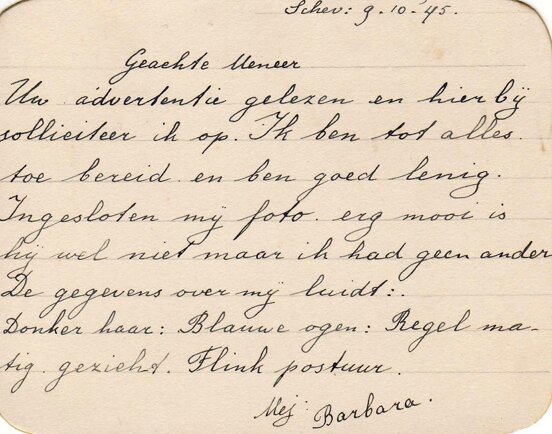 Schev: 9-10-'45.
Geachte Meneer
Uw advertentie gelezen en hierbij
solliciteer ik op. Ik ben tot alles
toe bereid en ben goed lenig.
Ingesloten mij foto. erg mooi is
hij wel niet maar ik had geen ander
De gegevens over mij luidt:.
Donker haar: Blauwe ogen: Regel ma-
tig gezicht. Flink postuur.
Mej: Barbara.